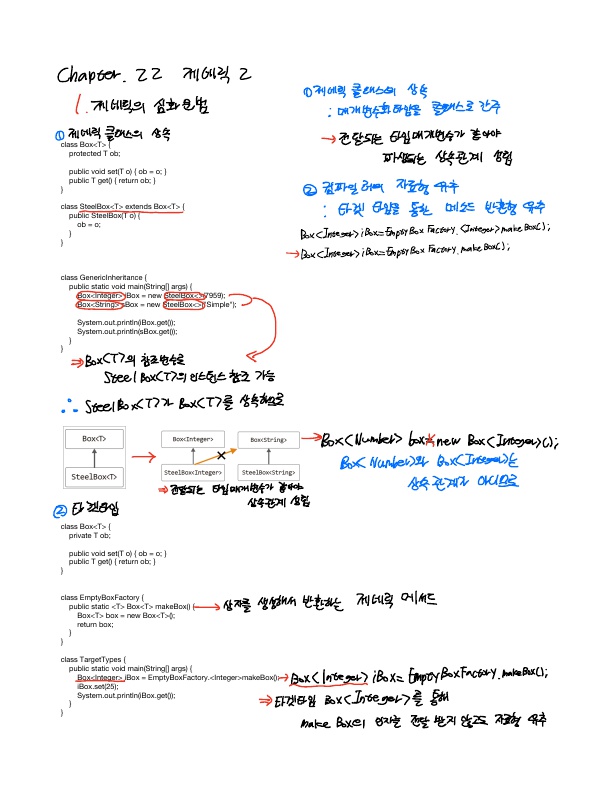 Chapter. 22 제네릭 2
1. 제네릭의 심화 문법
① 제네릭 클래스의 상속
class Box<T> {
protected T ob;
public void set(T o) { ob = o; }
public T get() { return ob; }
}
class SteelBox<T> extends Box<T> {
public SteelBox(T o) {
ob = o;
}
}
class GenericInheritance {
public static void main(String[] args) {
Box<Integer> iBox = new SteelBox<>(7959);
Box<String> sBox = new SteelBox<>("Simple");
System.out.println(iBox.get());
System.out.println(sBox.get());
}
}
⇒ Box<T>의 참조변수로
SteelBox<T>의 인스턴스 참조 가능
∴ SteelBox<T>가 Box<T>를 상속하므로
Box<T>
SteelBox<T>
→
Box<Integer>
Box<String>
SteelBox<Integer>
SteelBox<String>
→ Box<Number> box = new Box<Integer>();
Box<Number>와 Box<Integer>는
상속 관계가 아니므로
⇒ 전달되는 타입매개변수가 같아야
상속관계 성립
② 타겟타입
class Box<T> {
private T ob;
public void set(T o) { ob = o; }
public T get() { return ob; }
}
class EmptyBoxFactory {
public static <T> Box<T> makeBox() { → 상자를 생성해서 반환하는 제네릭 메서드
Box<T> box = new Box<T>();
return box;
}
}
class TargetTypes {
public static void main(String[] args) {
Box<Integer> iBox = EmptyBoxFactory.<Integer>makeBox(); → Box<Integer> iBox = EmptyBoxFactory.makeBox();
iBox.set(25);
System.out.println(iBox.get());
}
}
⇒ 타겟타입 Box<Integer>를 통해
makeBox의 인자를 전달 받지 않고도 자료형 유추
① 제네릭 클래스의 상속
: 매개변수화 타입을 클래스로 간주
→ 전달되는 타입매개변수가 같아야
파생되는 상속관계 성립
② 컴파일러의 자료형 유추
: 타겟 타입을 통한 메소드 반환형 유추
Box<Integer> iBox = EmptyBoxFactory.<Integer>makeBox();
→ Box<Integer> iBox = EmptyBoxFactory.makeBox();